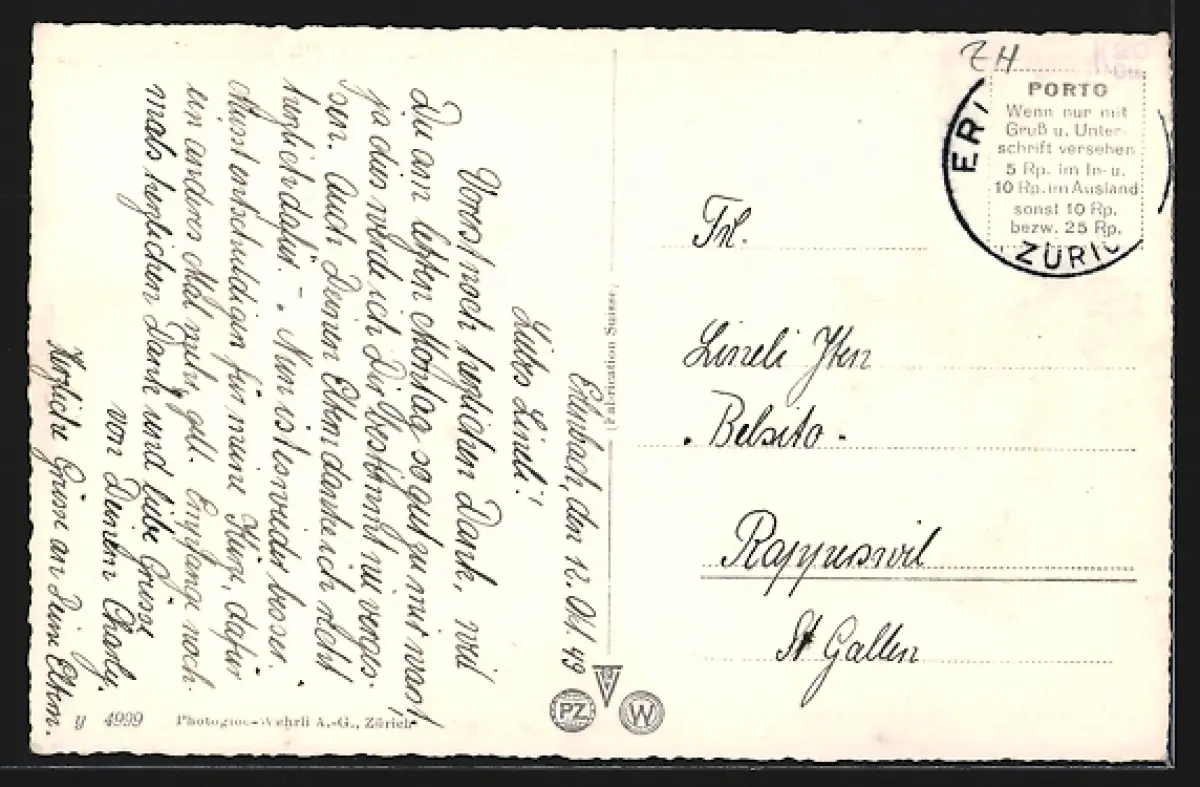 Erlenbach, den 12. Okt. 49
Liebes Lineli!
Vorerst noch herzlichen Dank, weil
Du am letzten Montag so gut zu mir warst,
ja dies werde ich Dir bestimmt nie verges-
sen. Auch Deinen Eltern danke ich recht
herzlich dafür. – Nun ist es wieder besser.
Müsst entschuldigen für meine Kürze, dafür
ein anderes Mal mehr, gell. Empfange noch-
mals herzlichen Dank und liebe Grüsse
von Deinem Charly.
Herzliche Grüsse an Deine Eltern.
y 4999 Photoglob-Wehrli A.-G., Zürich
Fabrication Suisse
PZ
W
ZH
PORTO
Wenn nur mit
Gruß u. Unter-
schrift versehen
5 Rp. im In- u.
10 Rp. im Ausland
sonst 10 Rp.
bezw. 25 Rp.
ERL
ZÜRIC
Frl.
Lineli Iten
"Belsito"
Rapperswil
St Gallen